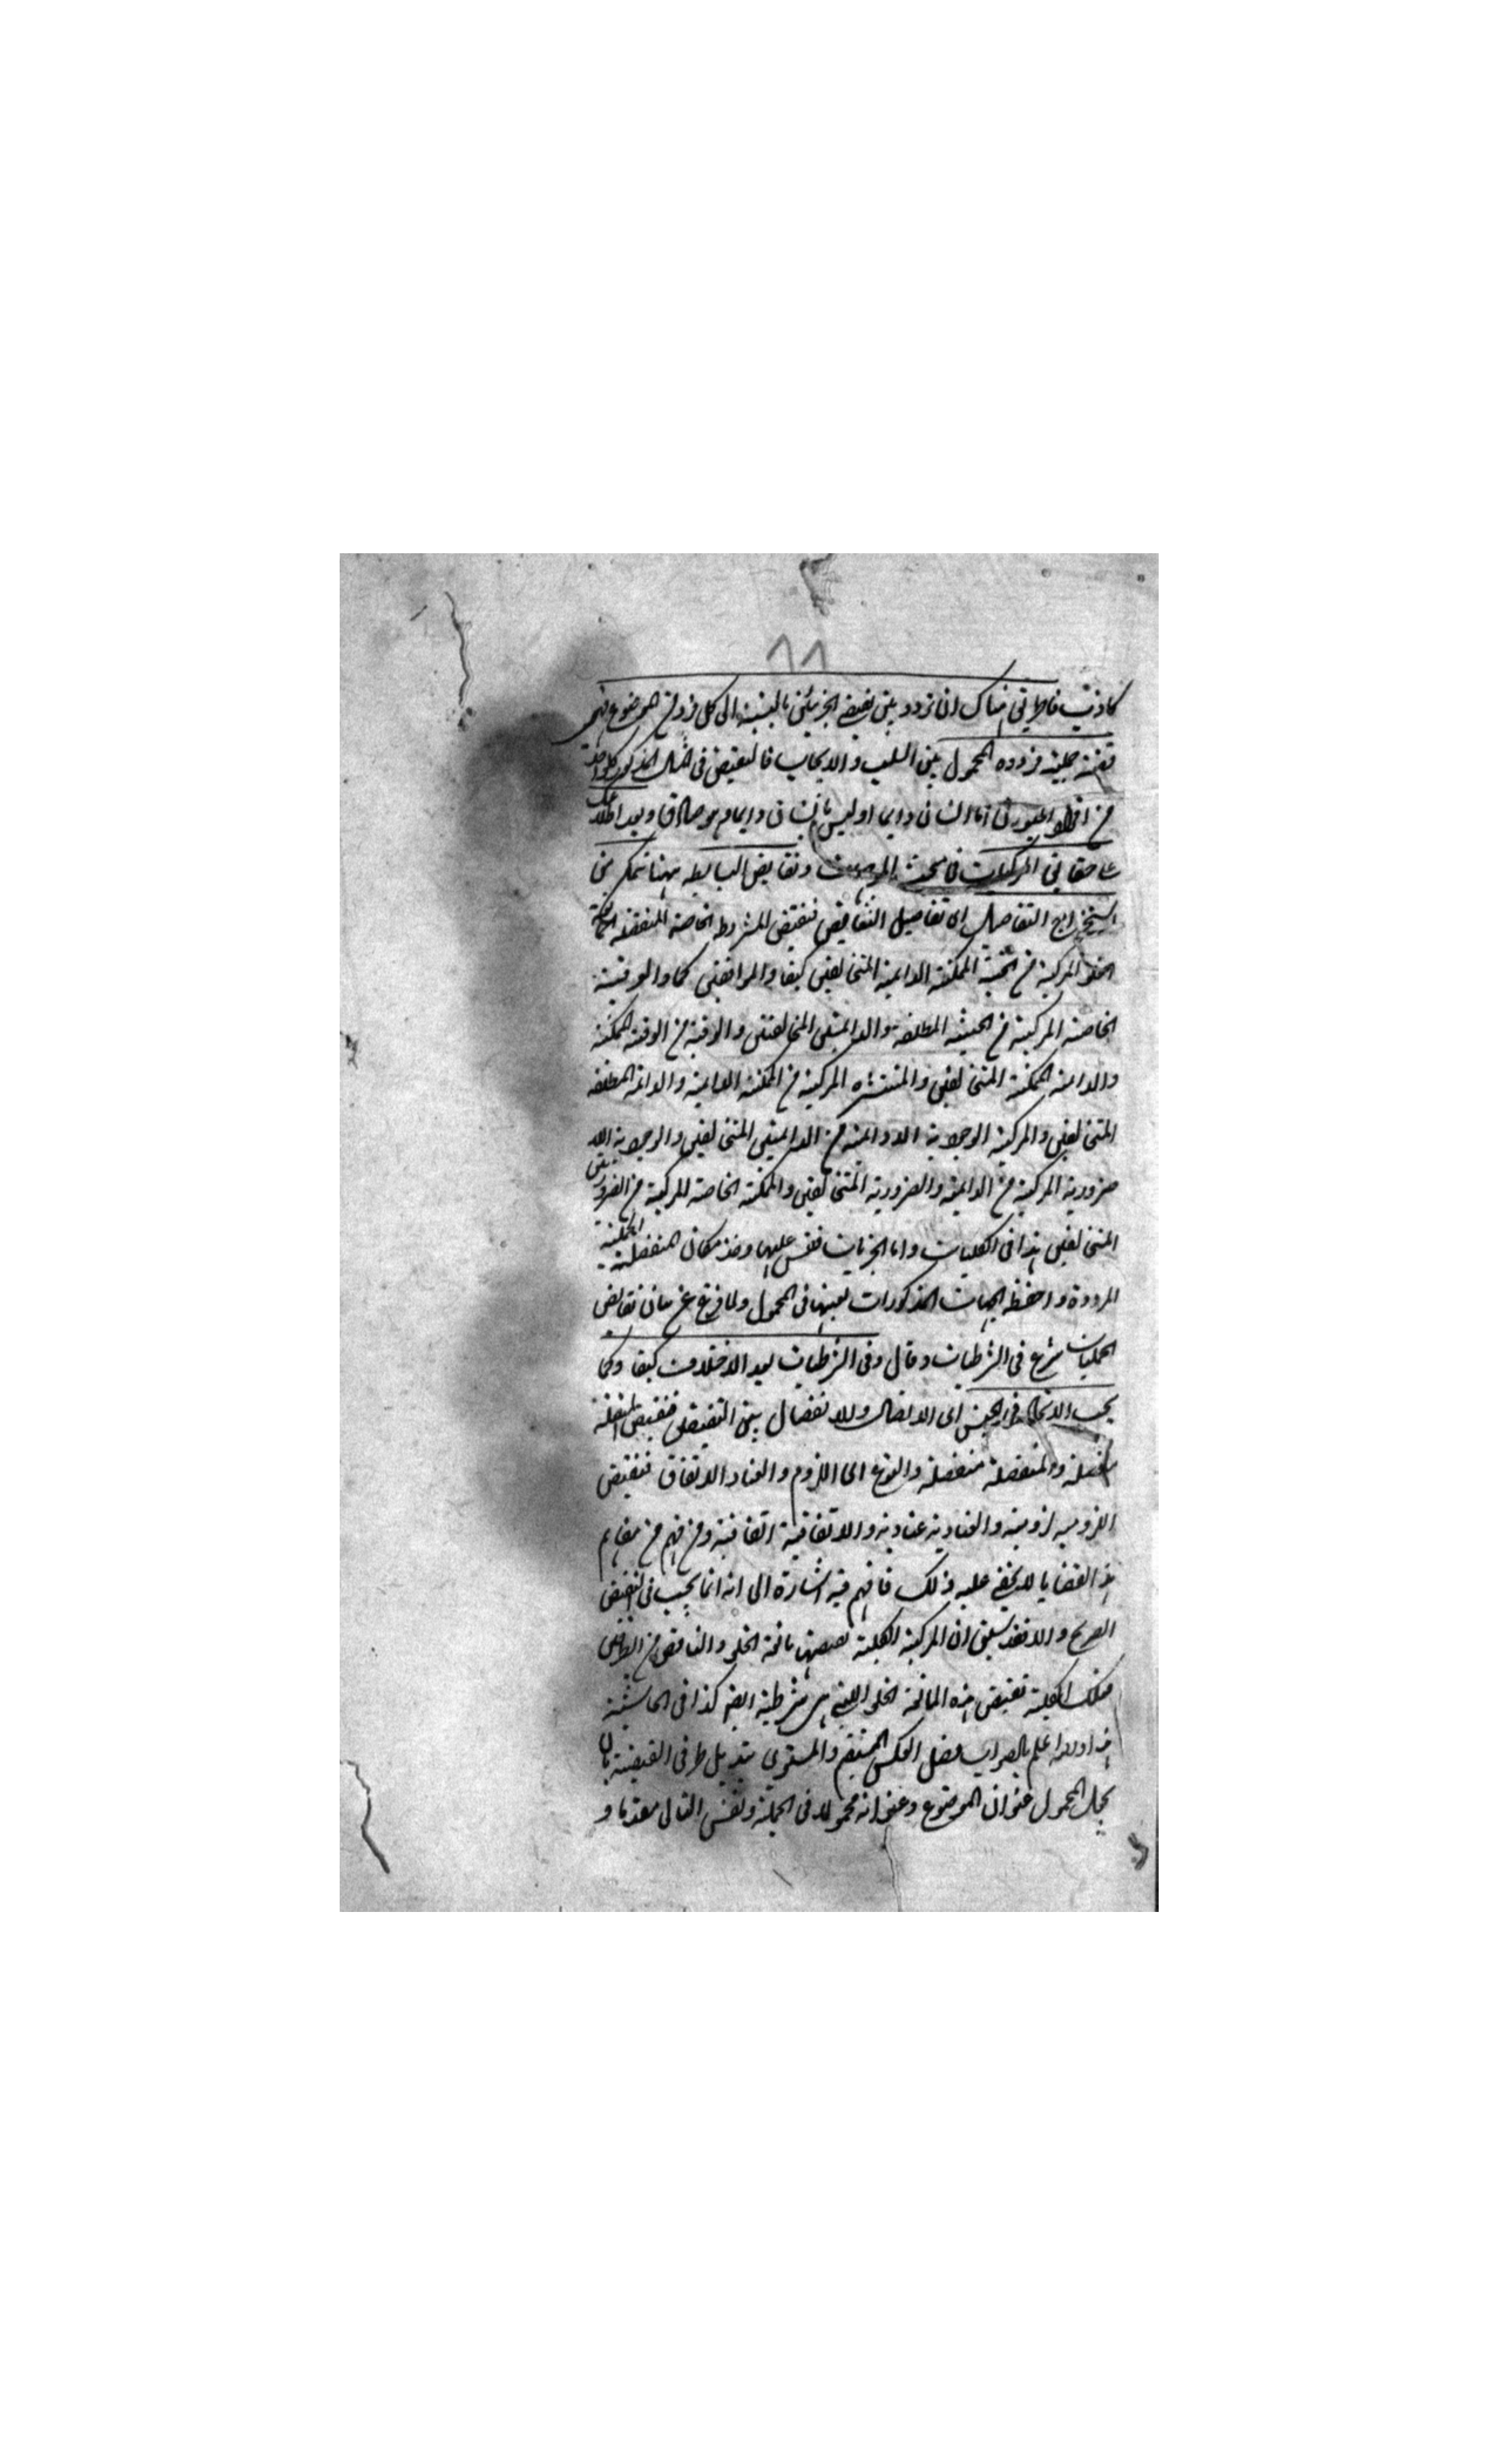 ٨٨
كاذبتين فالطريق هناك ان تردد بين نقيضى الجزئين بالنسبة الى كل فرد من الموضوع فهى
قضية حملية مرددة المحمول بين السلب والايجاب فالنقيض فى المثال المذكور كل واحد
من افراد اما انسان دايما او ليس بانسان دايما وهو صادق وبعد اطلاعك
على حقايق المركبات فى مبحث الموجهات ونقايض البسايط ههنا تتمكن من
استخراج التفاصيل اى تفاصيل النقايض فنقيض المشروطة الخاصة المنفصلة
الخلو المركبة من الحينية الممكنة الدايمة المتخالفين كيفا والموافقين كما والعرفية
الخاصة المركبة من الحينية المطلقة والدايمة المتخالفتين والوقتية من الوقتية الممكنة
والدايمة الممكنة المتخالفين والمنتشرة المركبة من الممكنة الدايمة والدايمة المطلقة
المتخالفين والمركبة الوجودية اللادوايمة من الدايمتين المتخالفين والوجودية اللا
ضرورية المركبة من الدايمة والضرورية المتخالفين والممكنة الخاصة المركبة من الضروريتين
المتخالفين هذا فى الكليات واما الجزئيات فقس عليها وخذ مكان المنفصلة الحملية
المرددة واحفظ الجهات المذكورات بعينها فى المحمول ولما فرغ عن بيان نقايض
الحمليات شرع فى الشرطيات وقال وفى الشرطيات بعد الاختلاف كيفا وكما
يجب الاتحاد فى الجنس اى الاتصال والانفصال بين النقيضين فنقيض المتصلة
متصلة والمنفصلة منفصلة والنوع اى اللزوم والعناد الاتفاق فنقيض
اللزومية لزومية والعنادية عنادية والاتفاقية اتفاقية ومن فهم من مفاهيم
هذا القضايا لا يخفى عليه ذلك فافهم فيه اشارة الى انه انما يجب فى النقيض
الصريح والا فقد سبق ان المركبة الكلية نقيضها مانعة الخلو والتناقض من الطرفين
فتلك الكلية نقيض هذه المانعة الخلو التى هى شرطية ايضا كذا فى الحاشية
هذا والله اعلم بالصواب فصل العكس المستقيم والمستوى تبديل طرفى القضية بان
يجعل المحمول عنوان الموضوع وعنوانه محمولا فى الحملية ونفس التالى مقدما و